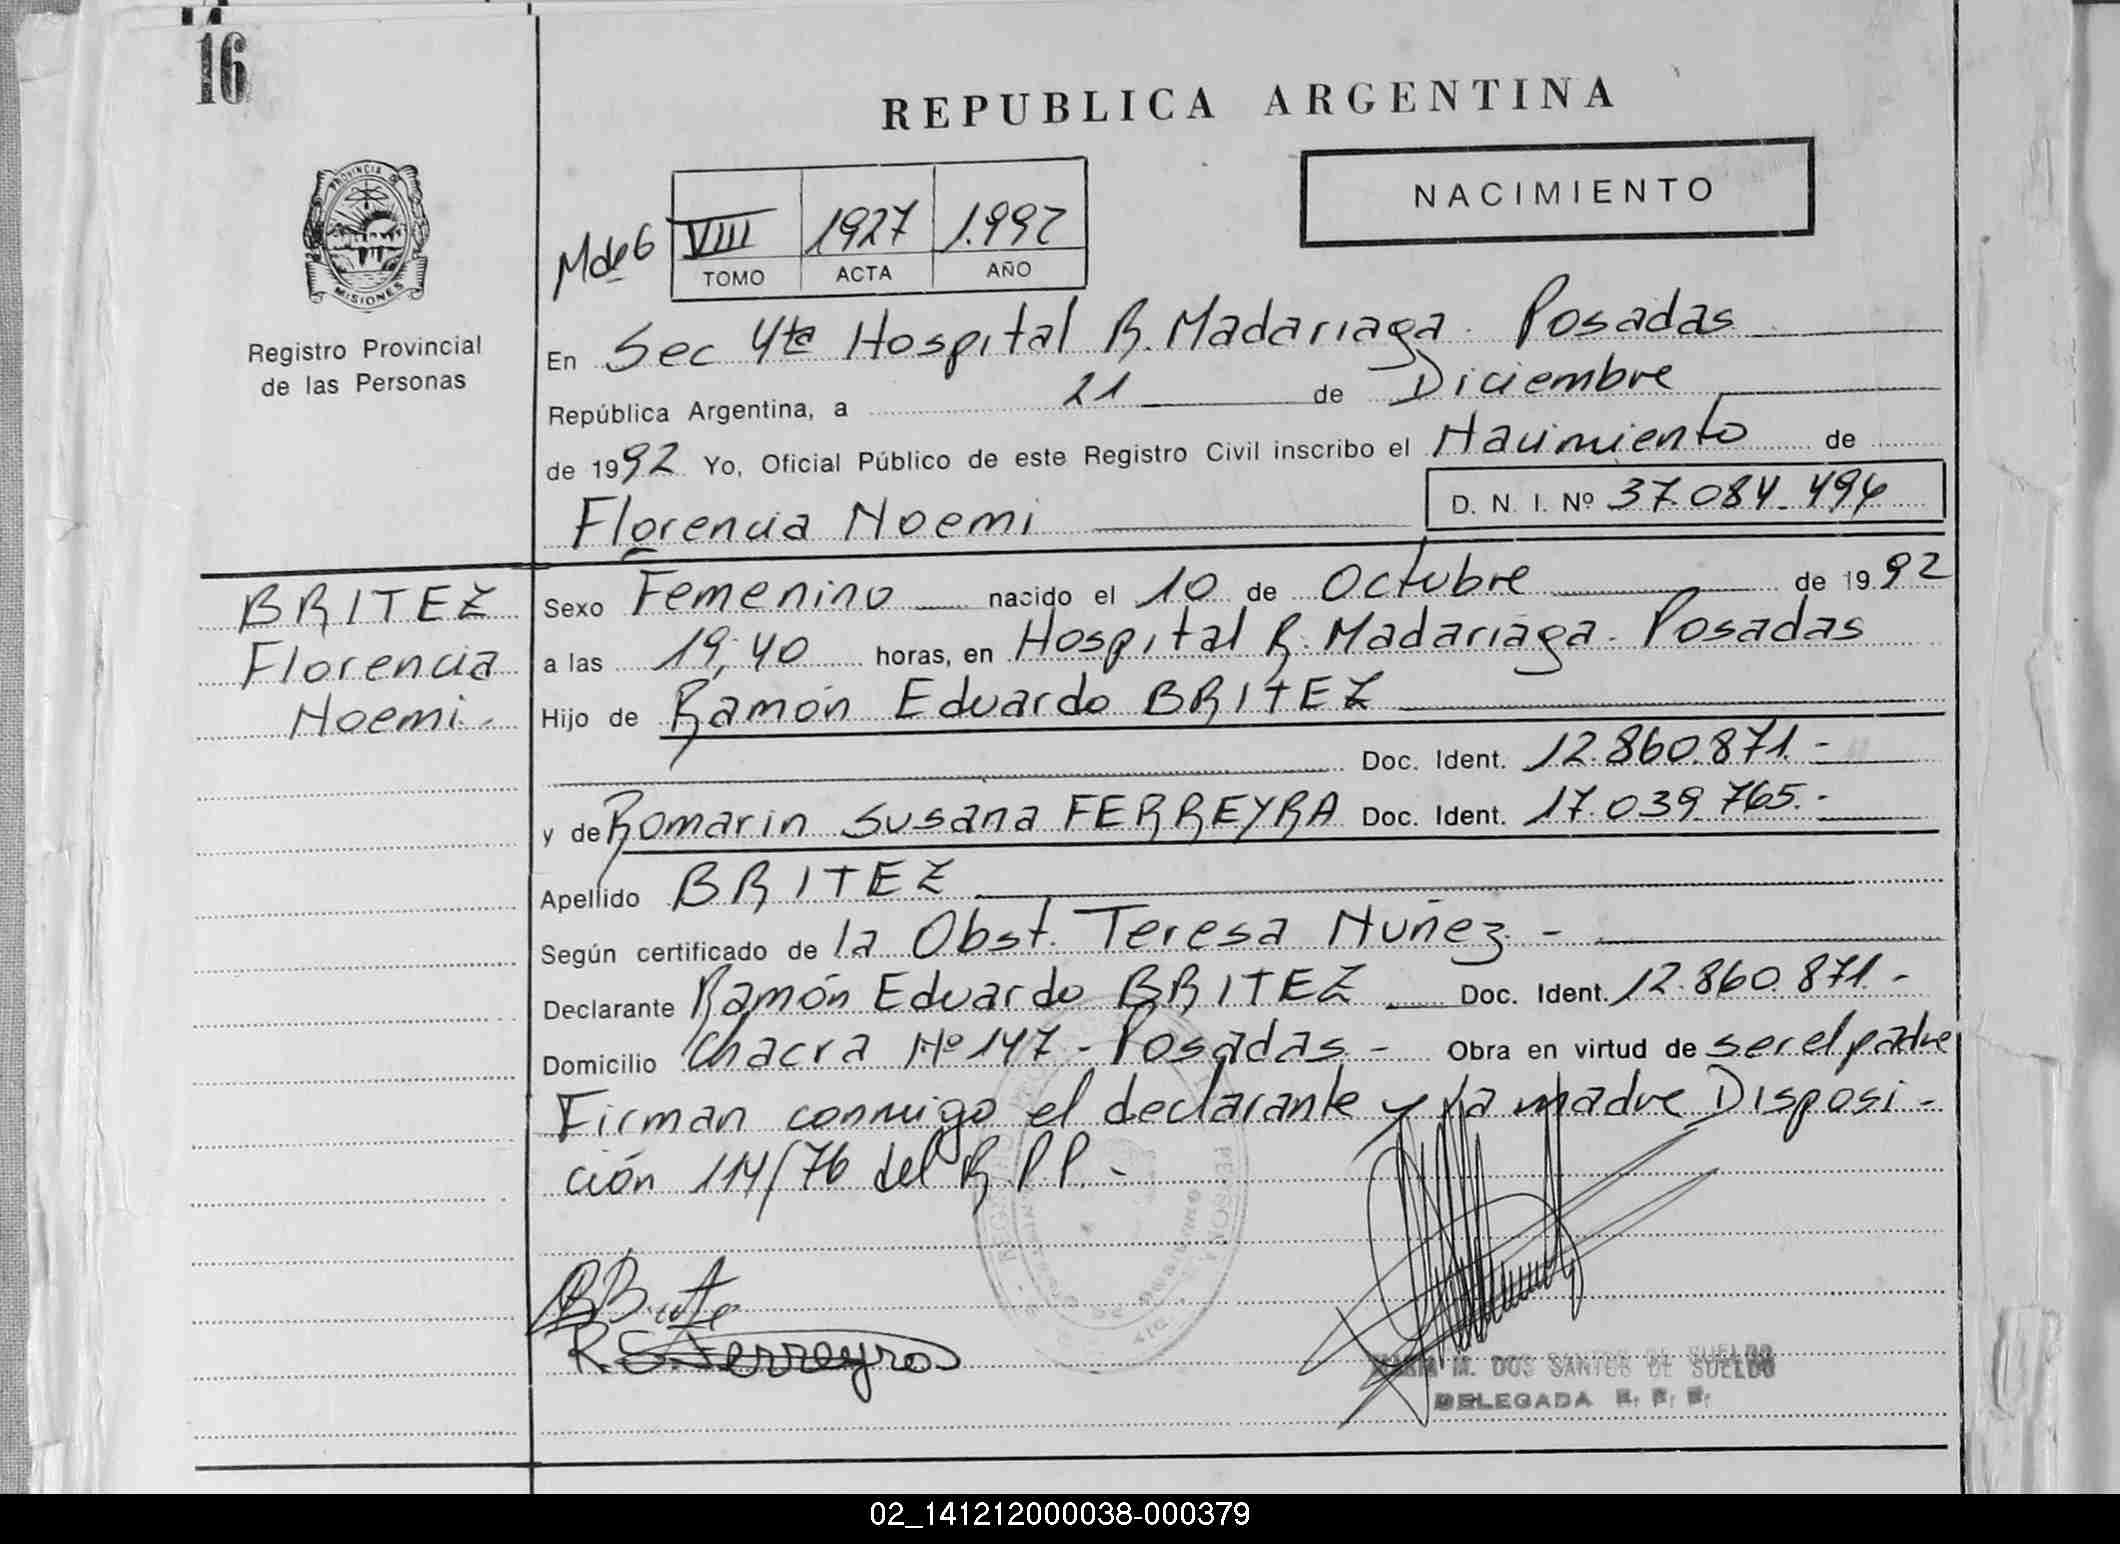 16
REPUBLICA ARGENTINA
NACIMIENTO
PROVINCIA DE
MISIONES
Registro Provincial
de las Personas
M de 6
VIII 1927 1.992
TOMO ACTA AÑO
En Sec 4ta Hospital R. Madariaga. Posadas
República Argentina, a 21 de Diciembre
de 1992 Yo, Oficial Público de este Registro Civil inscribo el Nacimiento de
Florencia Noemi
D. N. I. Nº 37.084.494
BRITEZ
Florencia
Noemi.-
Sexo Femenino nacido el 10 de Octubre de 1992
a las 19,40 horas, en Hospital R. Madariaga. Posadas
Hijo de Ramón Eduardo BRITEZ
Doc. Ident. 12.860.871.-
y de Romarin Susana FERREYRA Doc. Ident. 17.039.765.-
Apellido BRITEZ
Según certificado de la Obst. Teresa Nuñez -
Declarante Ramón Eduardo BRITEZ Doc. Ident. 12.860.871.-
Domicilio Chacra Nº 147 - Posadas - Obra en virtud de ser el padre
Firman conmigo el declarante y la madre Disposi-
ción 114/76 del R.P.P.-
R. S. Ferreyra
M. DOS SANTOS DE SUELDO
DELEGADA
02_141212000038-000379